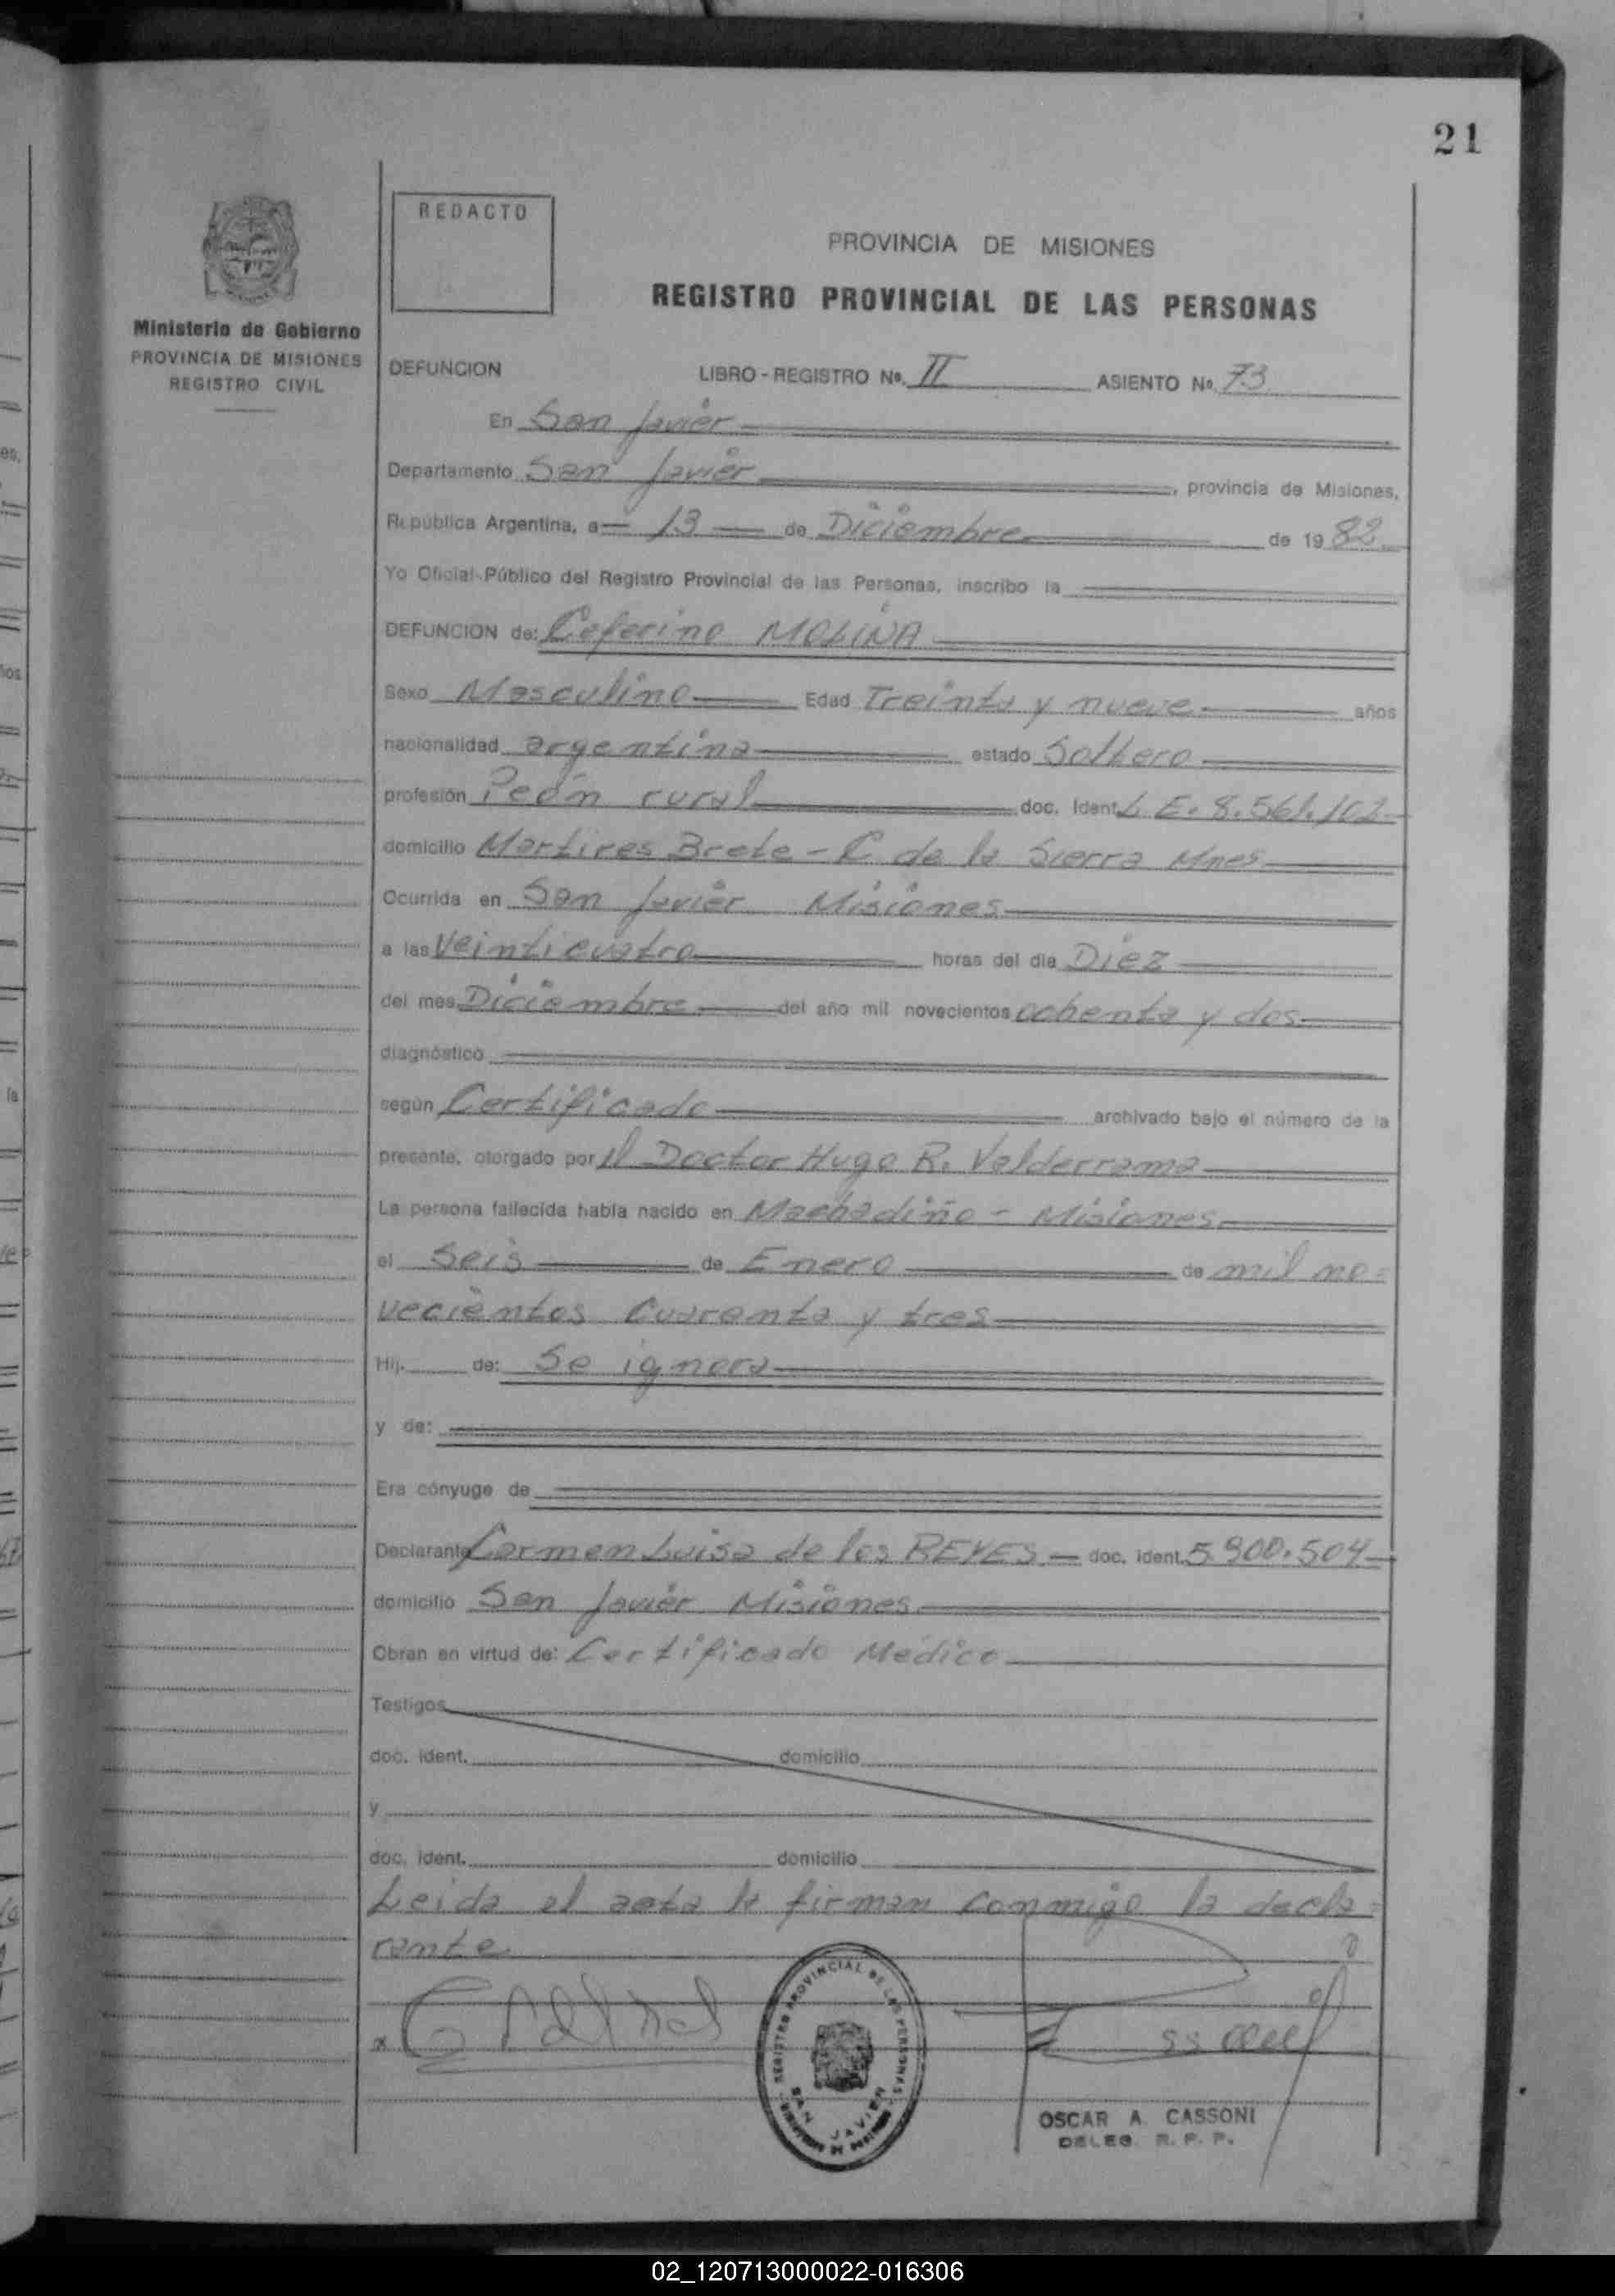 21
REDACTO
PROVINCIA DE MISIONES
REGISTRO PROVINCIAL DE LAS PERSONAS
Ministerio de Gobierno
PROVINCIA DE MISIONES
REGISTRO CIVIL
DEFUNCION LIBRO - REGISTRO Nº. II ASIENTO Nº. 73
En San Javier
Departamento San Javier, provincia de Misiones,
República Argentina, a 13 de Diciembre de 19 82
Yo Oficial Público del Registro Provincial de las Personas, inscribo la
DEFUNCION de: Ceferino MOLINA
Sexo Masculino Edad Treinta y nueve años
nacionalidad argentina estado Soltero
profesión Peón rural doc. Ident. L E. 8.561.102
domicilio Martires Brete - C. de la Sierra Mnes
Ocurrida en San Javier Misiones
a las Veinticuatro horas del día Diez
del mes Diciembre del año mil novecientos ochenta y dos
diagnóstico
según Certificado archivado bajo el número de la
presente, otorgado por el Doctor Hugo R. Valderrama
La persona fallecida había nacido en Machadiño - Misiones
el Seis de Enero de mil no=
vecientos cuarenta y tres
Hij. de: Se ignora
y de:
Era cónyuge de
Declarante Carmen Luisa de los REYES doc. ident. 5.900.504
domicilio San Javier Misiones
Obran en virtud de: Certificado Médico
Testigos
doc. ident. domicilio
y
doc. ident. domicilio
Leida el acta la firman conmigo la decla=
rante
REGISTRO PROVINCIAL DE LAS PERSONAS
SAN JAVIER
OSCAR A. CASSONI
DELEG. R. P. P.
02_120713000022-016306